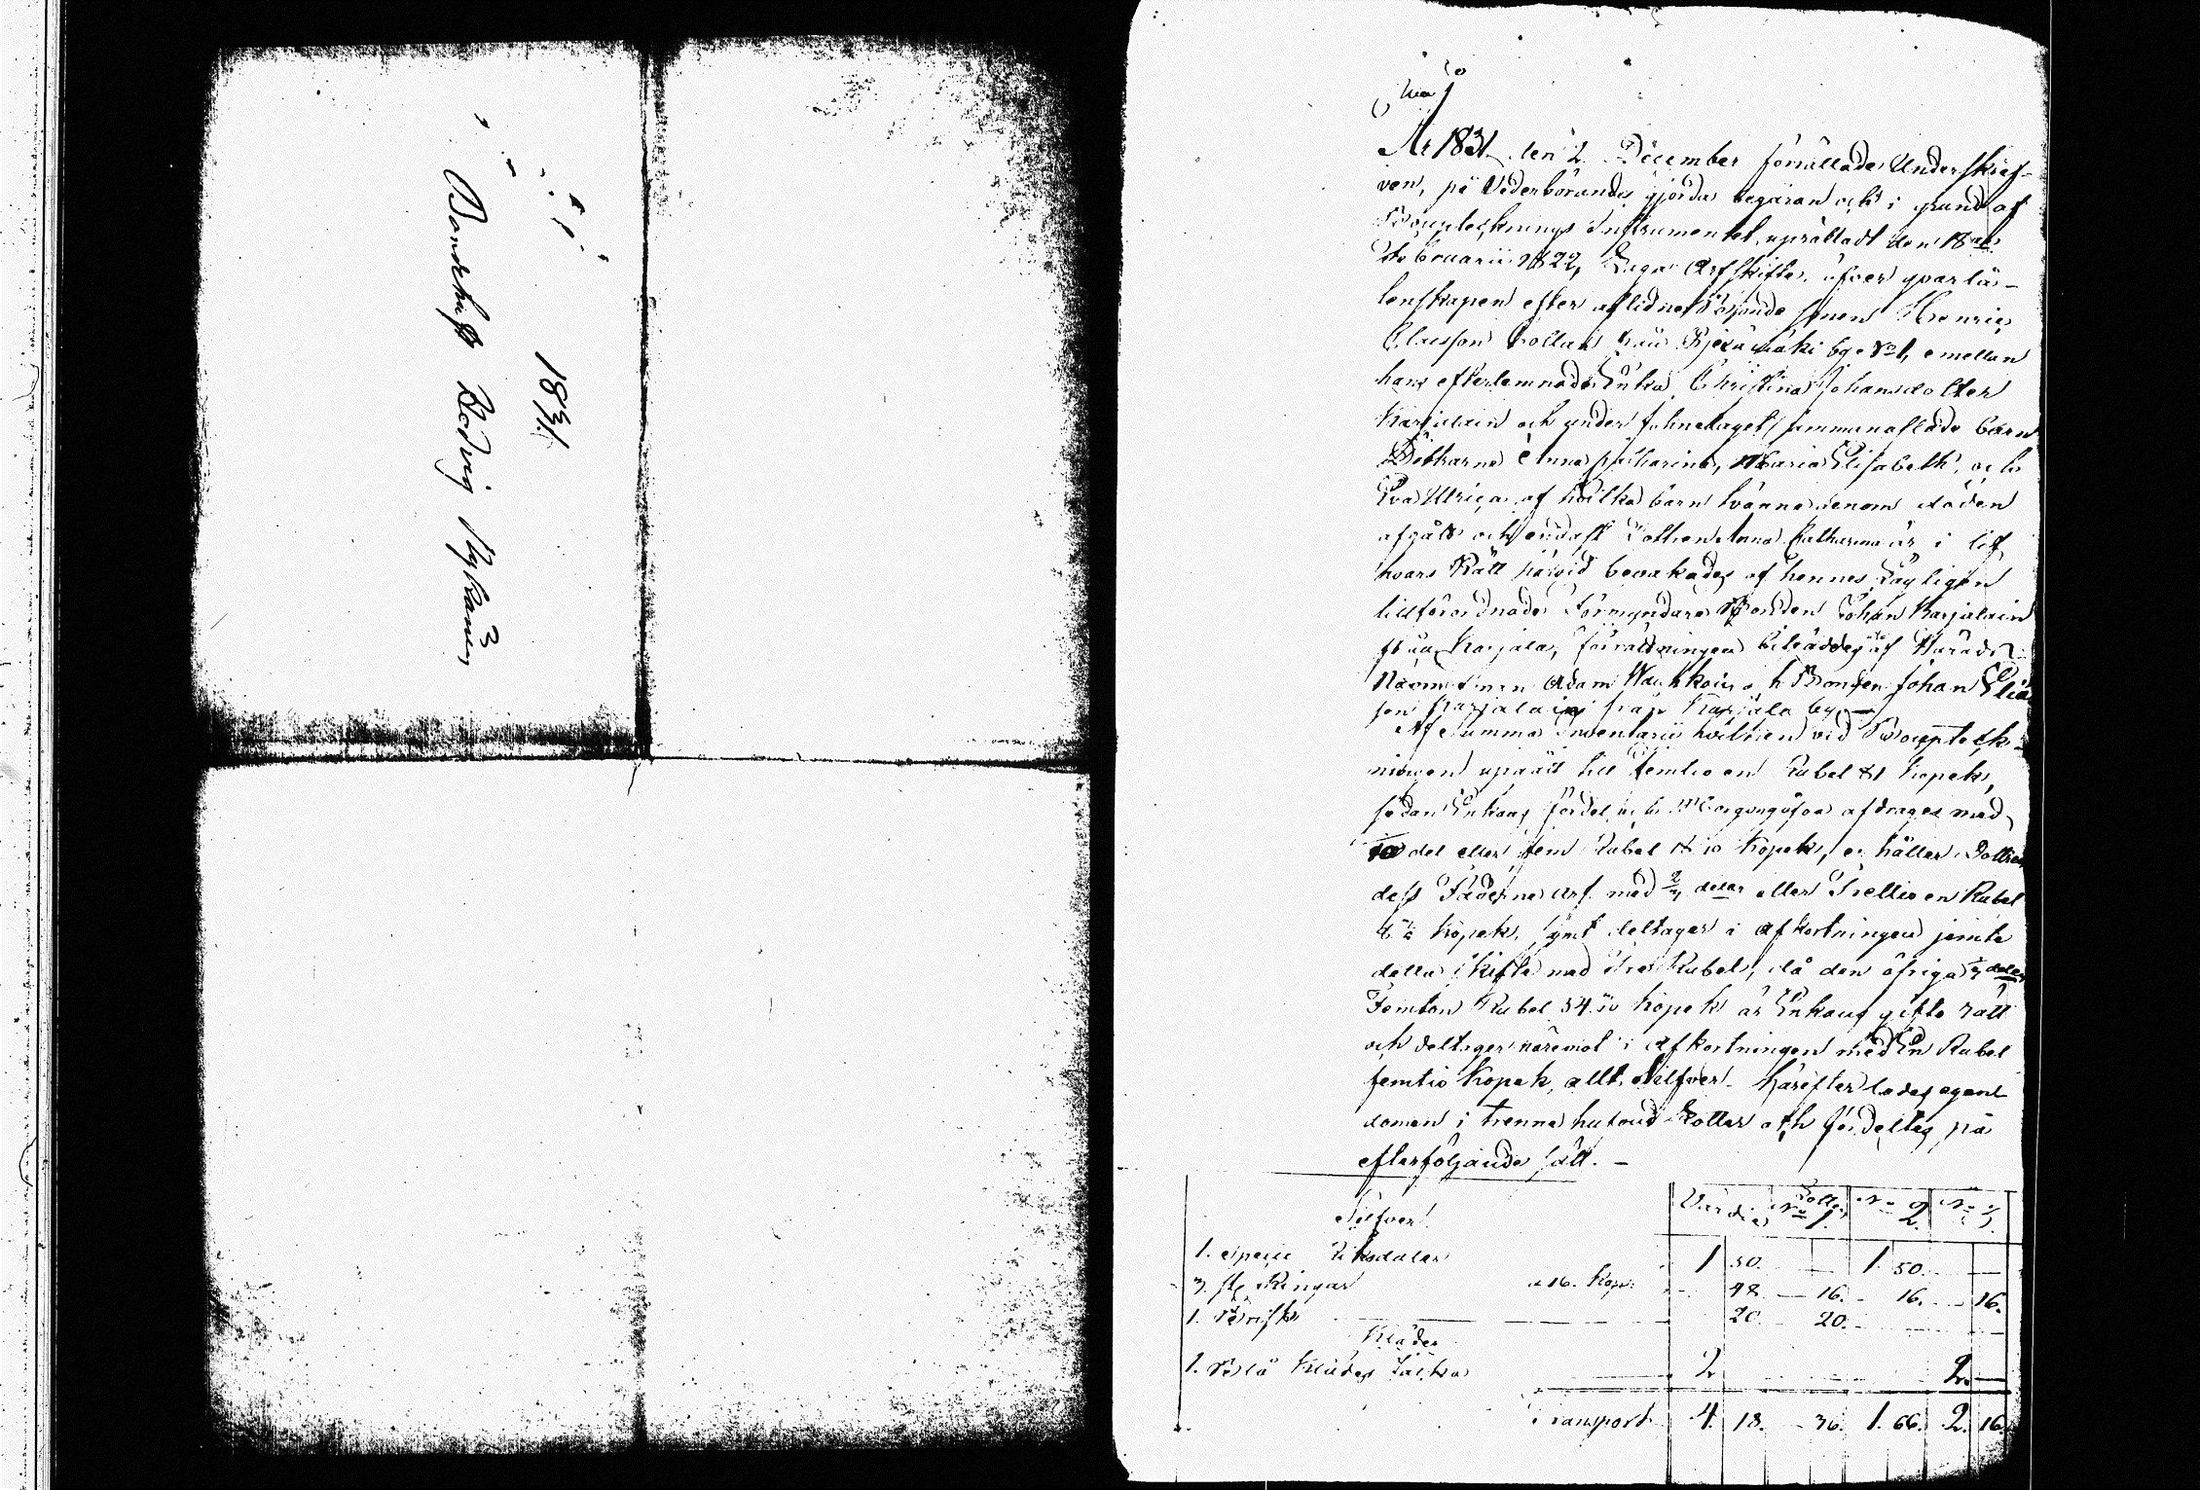 1831.
Bondehust. Hedvig Nykänen
År 1831 den 2 December förrättade Underskref-
ven, på Vederbörandes gjorda begäran och i grund af
Bouptecknings Instrumentet, uprättadt den 18de
Februarii 1822, Laga Arfskifte öfver qvarlå-
tenskapen efter aflidne Bonde sonen Henric
Classon från by No 1, emellan
hans efterlemnade Enka Christina Johansdotter
Karjalain och under sammanaflade barn
Döttrarne Anna Catharina, Maria Elisabeth, och
Eva Ulrica af hvilka barn tvänne genom döden
afgått och endast Dottren Anna Catharina är i lif
hvars Rätt härvid bevakades af hennes Lagligen
tillförordnade Förmyndare Bonden Johan Karjalain
från Karjala, förrättningen biträddes af Härads
Nämndeman Adam och Bonden Johan
son Karjalain från Karjala by. —
Af Summa Inventarii hvilken vid Bouptecknin-
ningen upgått till femtio en Rubel 81 kopek,
sedan Enkans fördel och Morgongåfva afdrages med
10 del eller fem Rubel 18 10 Kopek, erhåller Dottren
dess Fäderne arf med 2/3 delar eller Trettio en Rubel
8 Kopek, samt deltager i afkortningen jemte
detta skifte med tre Rubel, då den öfriga 1/3 delen
Femton Rubel 54 Kopek är Enkans gifto rätt
och deltager häremot i afkortningen med En Rubel
femtio Kopek, allt Silfver. Härefter lades egen-
domen i trenne hufvud Lotter och fördeltes på
efterföljande sätt. —
Silfver Värdie Lotten No 1. No 2. No 3.
1. specie Riksdaler 1 50. — 1. 50. —
3. st. Ringar a 16. Kop. 48. — 16. — 16. — 16.
1. 20. 20.
Kläder
1. Blå Klädes 2 2. —
Transport 4. 18. — 36. 1. 66. 2. 16.